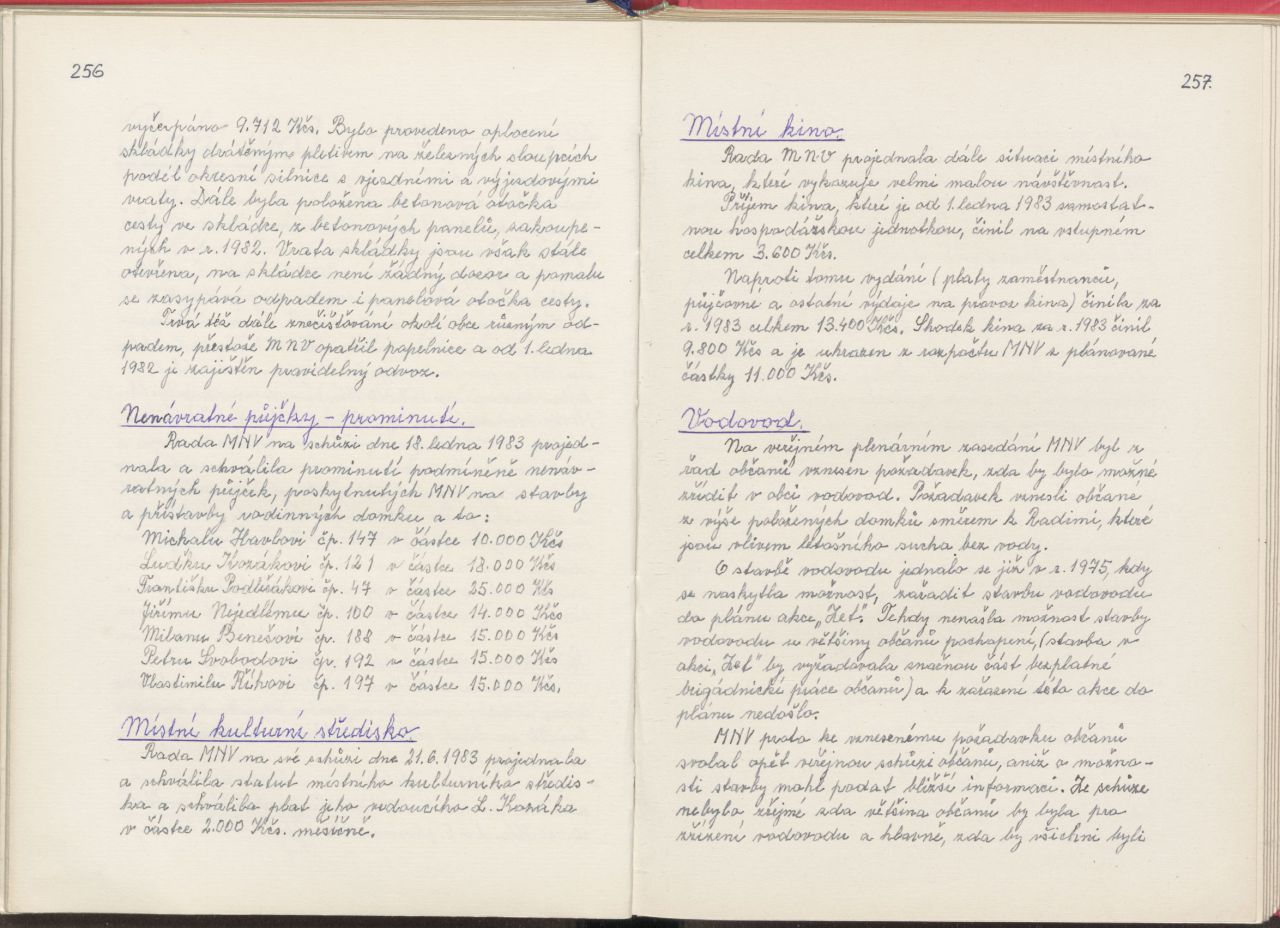 256
vyčerpáno 9.712 Kčs. Bylo provedeno oplocení
skládky drátěným pletivem na železných sloupcích
podél okresní silnice s vjezdními a výjezdovými
vraty. Dále byla položena betonová otočka
cesty ve skládce, z betonových panelů, zakoupe-
ných v r. 1982. Vrata skládky jsou však stále
otevřena, na skládce není žádný dozor a pomalu
se zasypává odpadem i panelová otočka cesty.
Trvá též dále znečišťování okolí obce různým od-
padem, přestože MNV opatřil popelnice a od 1. ledna
1982 je zajištěn pravidelný odvoz.
Nenávratné půjčky – prominutí.
Rada MNV na schůzi dne 18. ledna 1983 projed-
nala a schválila prominutí podmíněně nenáv-
ratných půjček, poskytnutých MNV na stavby
a přístavby rodinných domku a to:
Michalu Havlovi čp. 147 v částce 10.000 Kčs
Luďku Kozákovi čp. 121 v částce 18.000 Kčs
Františku Podlešákovi čp. 47 v částce 25.000 Kčs
Jiřímu Nejedlému čp. 100 v částce 14.000 Kčs
Milanu Benešovi čp. 188 v částce 15.000 Kčs
Petru Svobodovi čp. 192 v částce 15.000 Kčs
Vlastimilu Říhovi čp. 197 v částce 15.000 Kčs.
Místní kulturní středisko.
Rada MNV na své schůzi dne 21.6.1983 projednala
a schválila statut místního kulturního středis-
ka a schválila plat jeho vedoucího L. Kozáka
v částce 2.000 Kčs. měsíčně.
257.
Místní kino.
Rada MNV projednala dále situaci místního
kina, které vykazuje velmi malou návštěvnost.
Příjem kina, které je od 1. ledna 1983 samostat-
nou hospodářskou jednotkou, činil na vstupném
celkem 3.600 Kčs.
Naproti tomu vydání (platy zaměstnanců,
půjčovné a ostatní výdaje na provoz kina) činila za
r. 1983 celkem 13.400 Kčs. Shodek kina za r. 1983 činil
9.800 Kčs a je uhrazen z rozpočtu MNV z plánované
částky 11.000 Kčs.
Vodovod.
Na veřejném plenárním zasedání MNV byl z
řad občanů vznesen požadavek, zda by bylo možné
zřídit v obci vodovod. Požadavek vznesli občané
z výše položených domků směrem k Radimi, které
jsou vlivem letošního sucha bez vody.
O stavbě vodovodu jednalo se již v r. 1975, kdy
se naskytla možnost, zařadit stavbu vodovodu
do plánu akce „Zet". Tehdy nenašla možnost stavby
vodovodu u většiny občanů pochopení, (stavba v
akci „Zet" by vyžadovala značnou část bezplatné
brigádnické práce občanů) a k zařazení této akce do
plánu nedošlo.
MNV proto ke vznesenému požadavku občanů
svolal opět veřejnou schůzi občanů, aniž o možno-
sti stavby mohl podat bližší informaci. Ze schůze
nebylo zřejmé zda většina občanů by byla pro
zřízení vodovodu a hlavně, zda by všichni byli